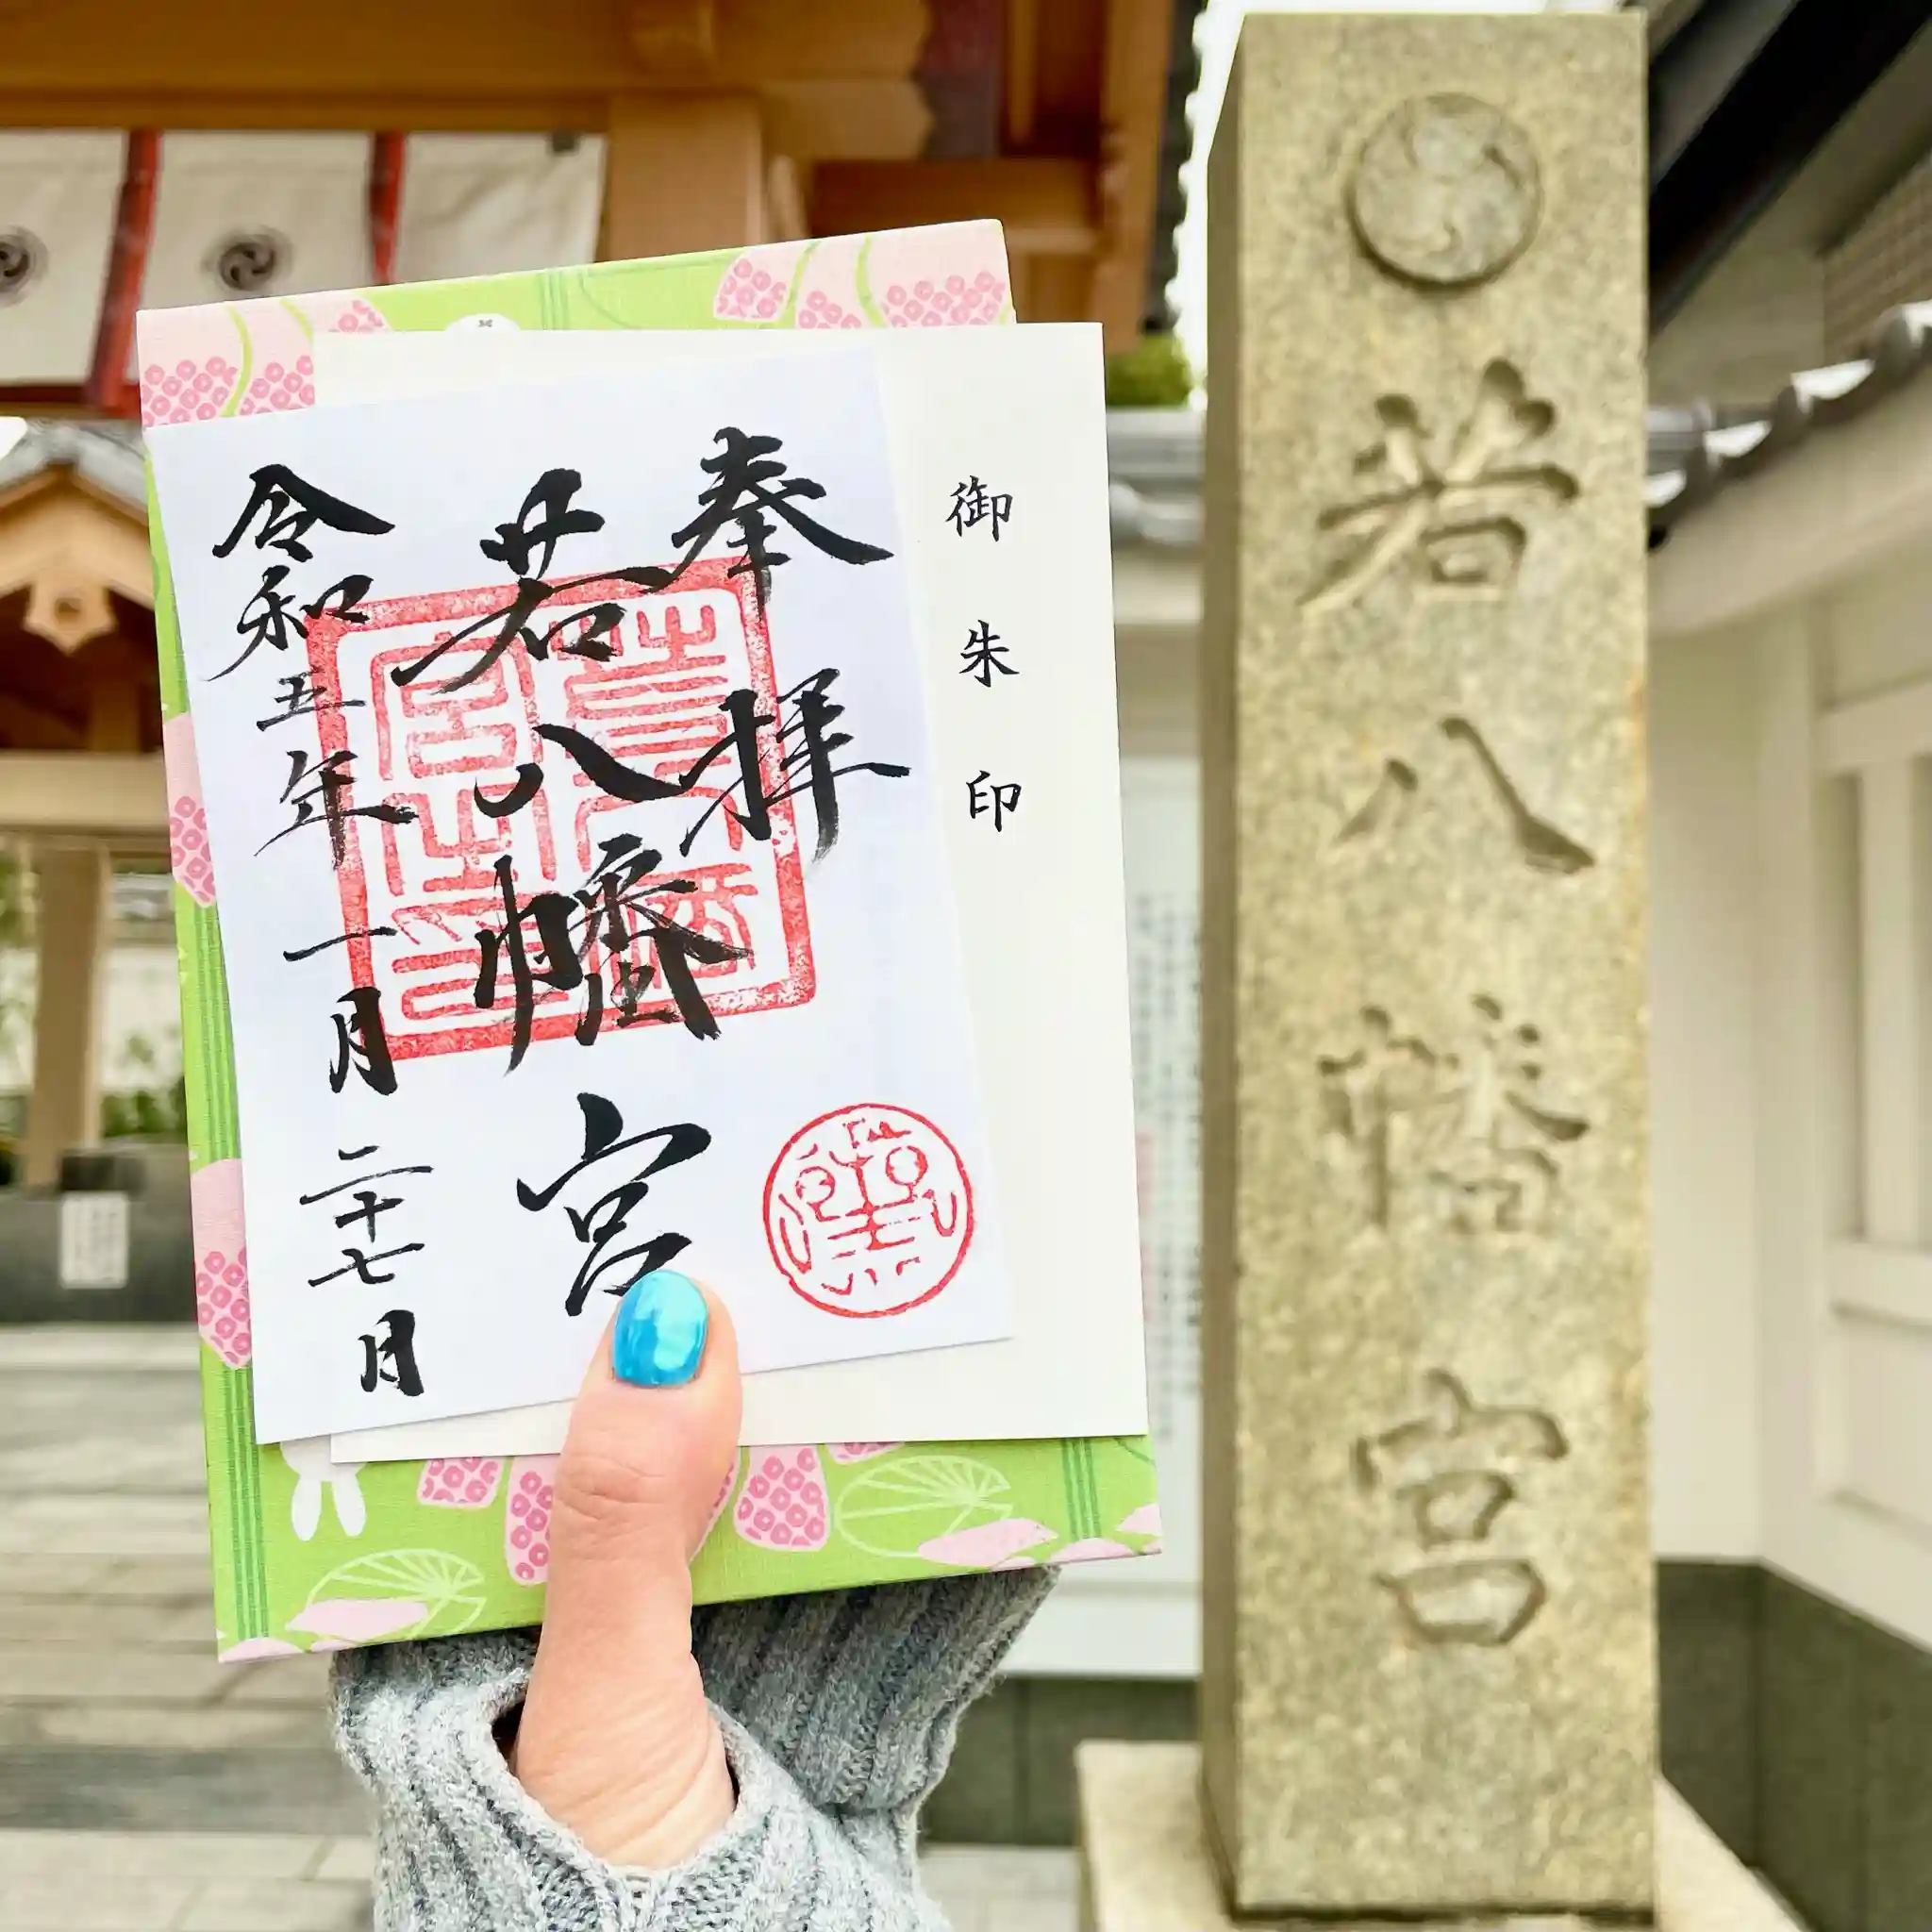 御朱印
奉拝
若八幡宮
令和五年一月二十七日
若八幡宮